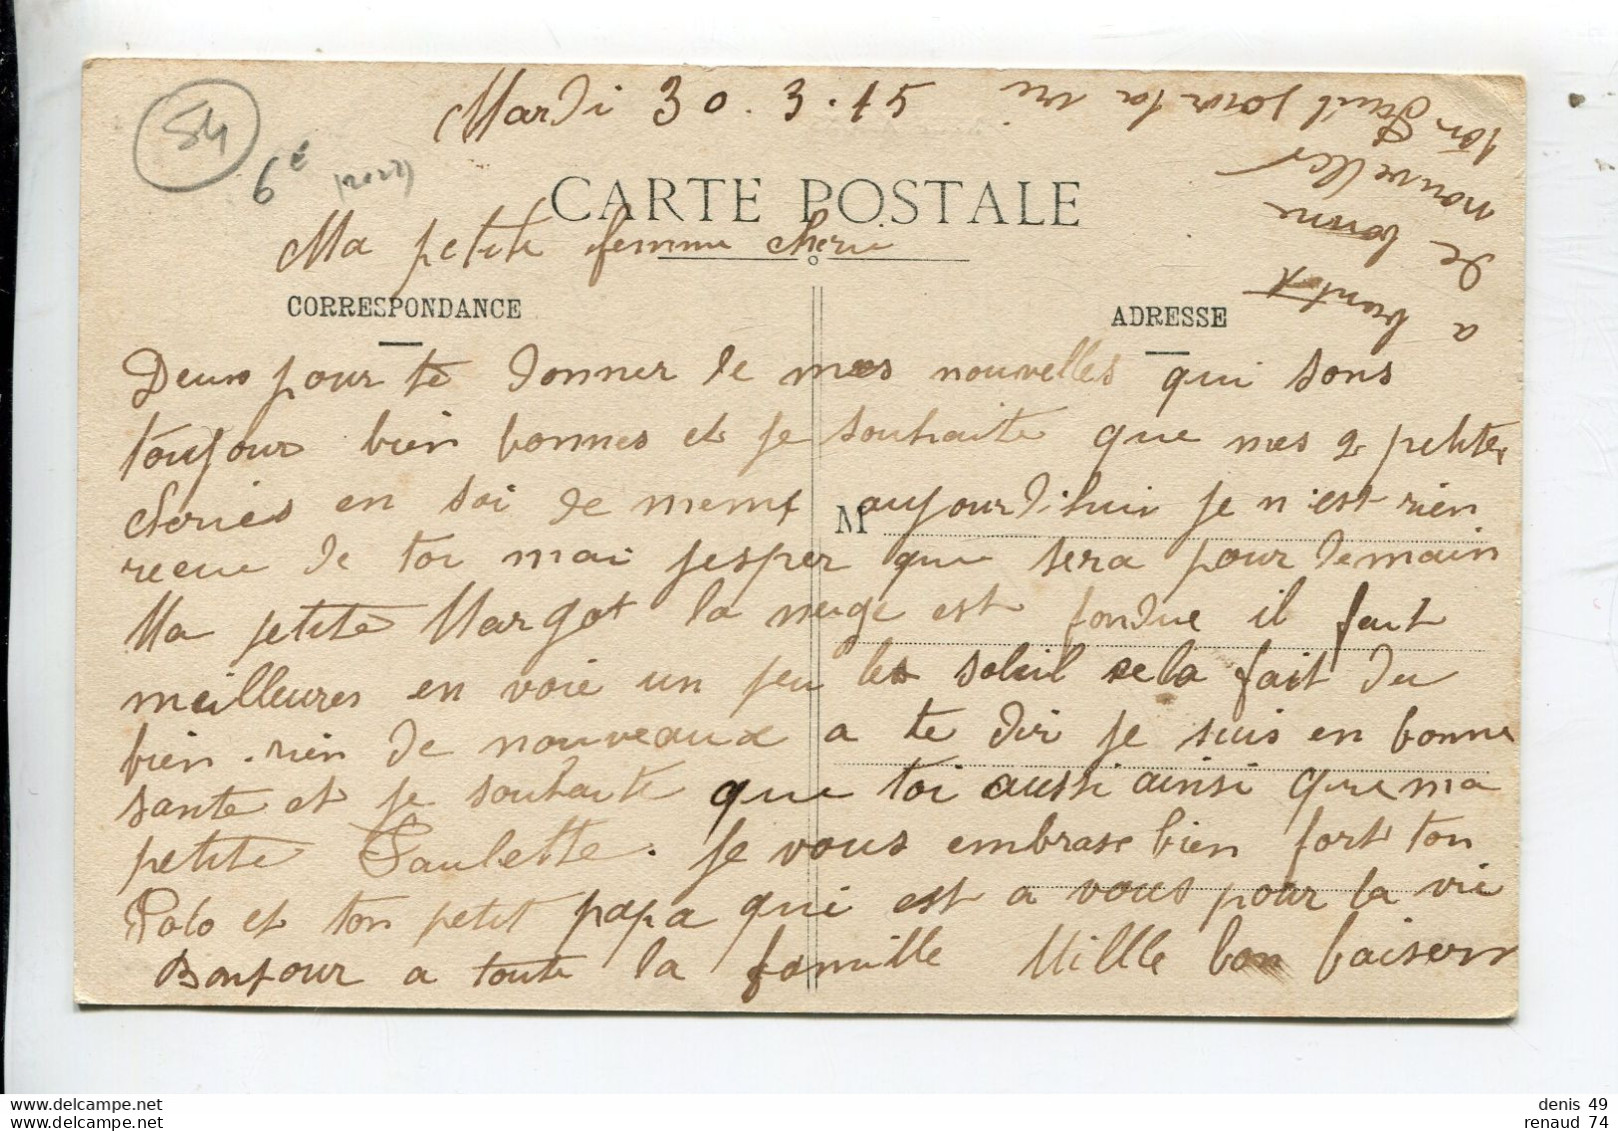 54
6€
Mardi 30.3.15
CARTE POSTALE
Ma petite femme cherie
CORRESPONDANCE
ADRESSE
Deux pour te donner de mes nouvelles qui sons
toujour bien bonnes et je souhaite que mes 2 petites
cheries en soi de meme aujourd'huir je n'est rien
M
recue de toi mai jesper que sera pour demain
Ma petite Margot la neige est fondue il fait
meilleures en voie un peu les soleil cela fait du
bien. rien de nouveaux a te dir je suis en bonne
sante et je souhaite que toi aussi ainsi que ma
petite Paulette. Je vous embrase bien fort ton
Polo et ton petit papa qui est a vous pour la vie
Bonjour a toute la famille Millle bon baisers
a biantot
de bonne
nouvelles
ton Paul pour la vie
denis 49
renaud 74